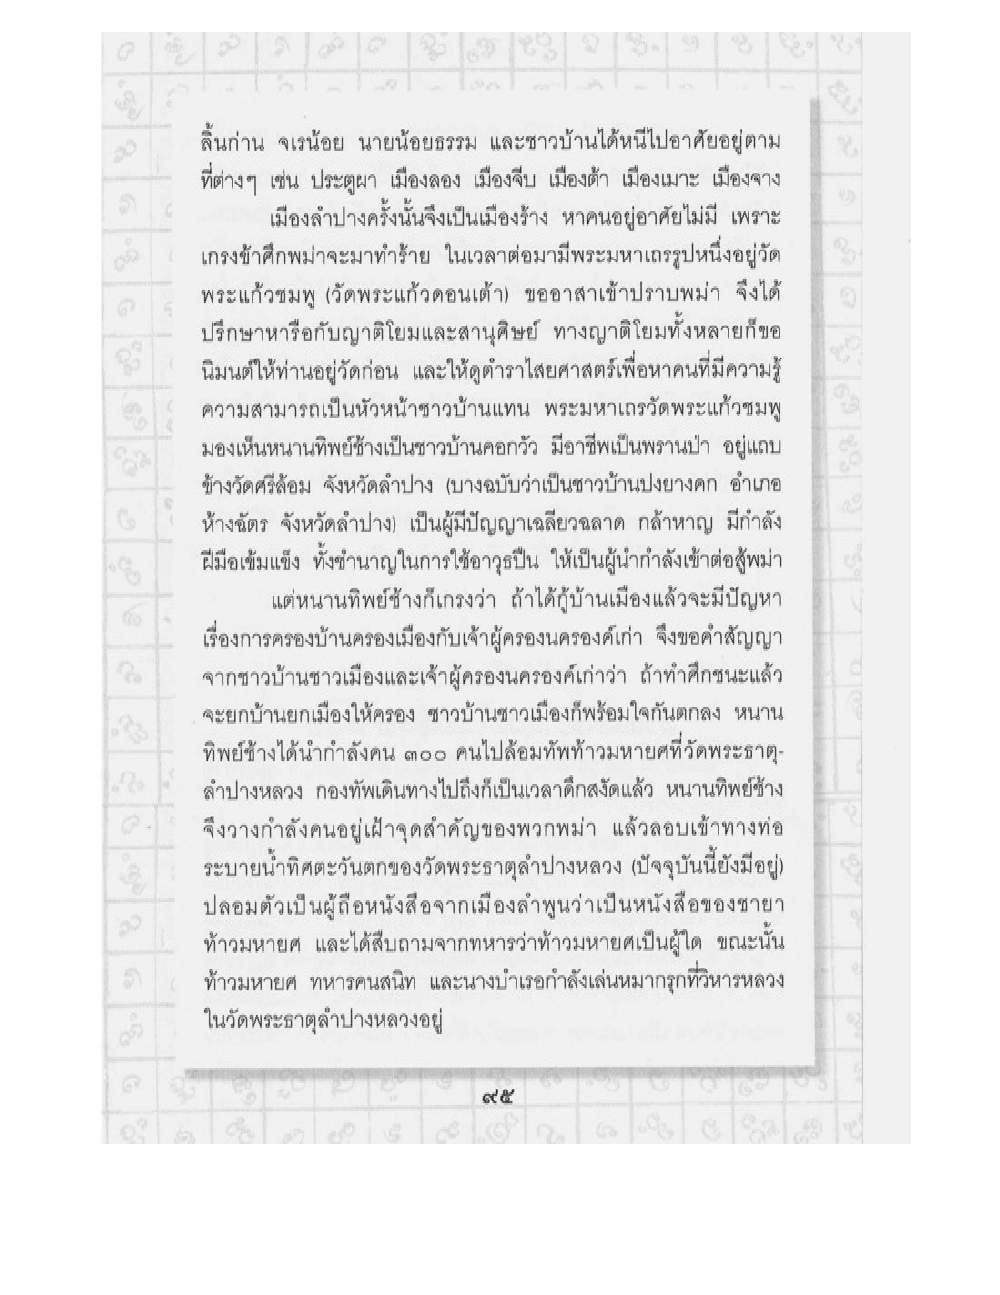 ลิ้นก่าน จเรน้อย นายน้อยธรรม และชาวบ้านได้หนีไปอาศัยอยู่ตาม
ที่ต่างๆ เช่น ประตูผา เมืองลอง เมืองจีบ เมืองต้า เมืองเมาะ เมืองจาง
เมืองลำปางครั้งนั้นจึงเป็นเมืองร้าง หาคนอยู่อาศัยไม่มี เพราะ
เกรงข้าศึกพม่าจะมาทำร้าย ในเวลาต่อมามีพระมหาเถรรูปหนึ่งอยู่วัด
พระแก้วชมพู (วัดพระแก้วดอนเต้า) ขออาสาเข้าปราบพม่า จึงได้
ปรึกษาหารือกับญาติโยมและสานุศิษย์ ทางญาติโยมทั้งหลายก็ขอ
นิมนต์ให้ท่านอยู่วัดก่อน และให้ดูตำราไสยศาสตร์เพื่อหาคนที่มีความรู้
ความสามารถเป็นหัวหน้าชาวบ้านแทน พระมหาเถรวัดพระแก้วชมพู
มองเห็นหนานทิพย์ช้างเป็นชาวบ้านคอกวัว มีอาชีพเป็นพรานป่า อยู่แถบ
ข้างวัดศรีล้อม จังหวัดลำปาง (บางฉบับว่าเป็นชาวบ้านปงยางคก อำเภอ
ห้างฉัตร จังหวัดลำปาง) เป็นผู้มีปัญญาเฉลียวฉลาด กล้าหาญ มีกำลัง
ฝีมือเข้มแข็ง ทั้งชำนาญในการใช้อาวุธปืน ให้เป็นผู้นำกำลังเข้าต่อสู้พม่า
แต่หนานทิพย์ช้างก็เกรงว่า ถ้าได้กู้บ้านเมืองแล้วจะมีปัญหา
เรื่องการครองบ้านครองเมืองกับเจ้าผู้ครองนครองค์เก่า จึงขอคำสัญญา
จากชาวบ้านชาวเมืองและเจ้าผู้ครองนครองค์เก่าว่า ถ้าทำศึกชนะแล้ว
จะยกบ้านยกเมืองให้ครอง ชาวบ้านชาวเมืองก็พร้อมใจกันตกลง หนาน
ทิพย์ช้างได้นำกำลังคน ๓๐๐ คนไปล้อมทัพท้าวมหายศที่วัดพระธาตุ-
ลำปางหลวง กองทัพเดินทางไปถึงก็เป็นเวลาดึกสงัดแล้ว หนานทิพย์ช้าง
จึงวางกำลังคนอยู่เฝ้าจุดสำคัญของพวกพม่า แล้วลอบเข้าทางท่อ
ระบายน้ำทิศตะวันตกของวัดพระธาตุลำปางหลวง (ปัจจุบันนี้ยังมีอยู่)
ปลอมตัวเป็นผู้ถือหนังสือจากเมืองลำพูนว่าเป็นหนังสือของชายา
ท้าวมหายศ และได้สืบถามจากทหารว่าท้าวมหายศเป็นผู้ใด ขณะนั้น
ท้าวมหายศ ทหารคนสนิท และนางบำเรอกำลังเล่นหมากรุกที่วิหารหลวง
ในวัดพระธาตุลำปางหลวงอยู่
๙๕